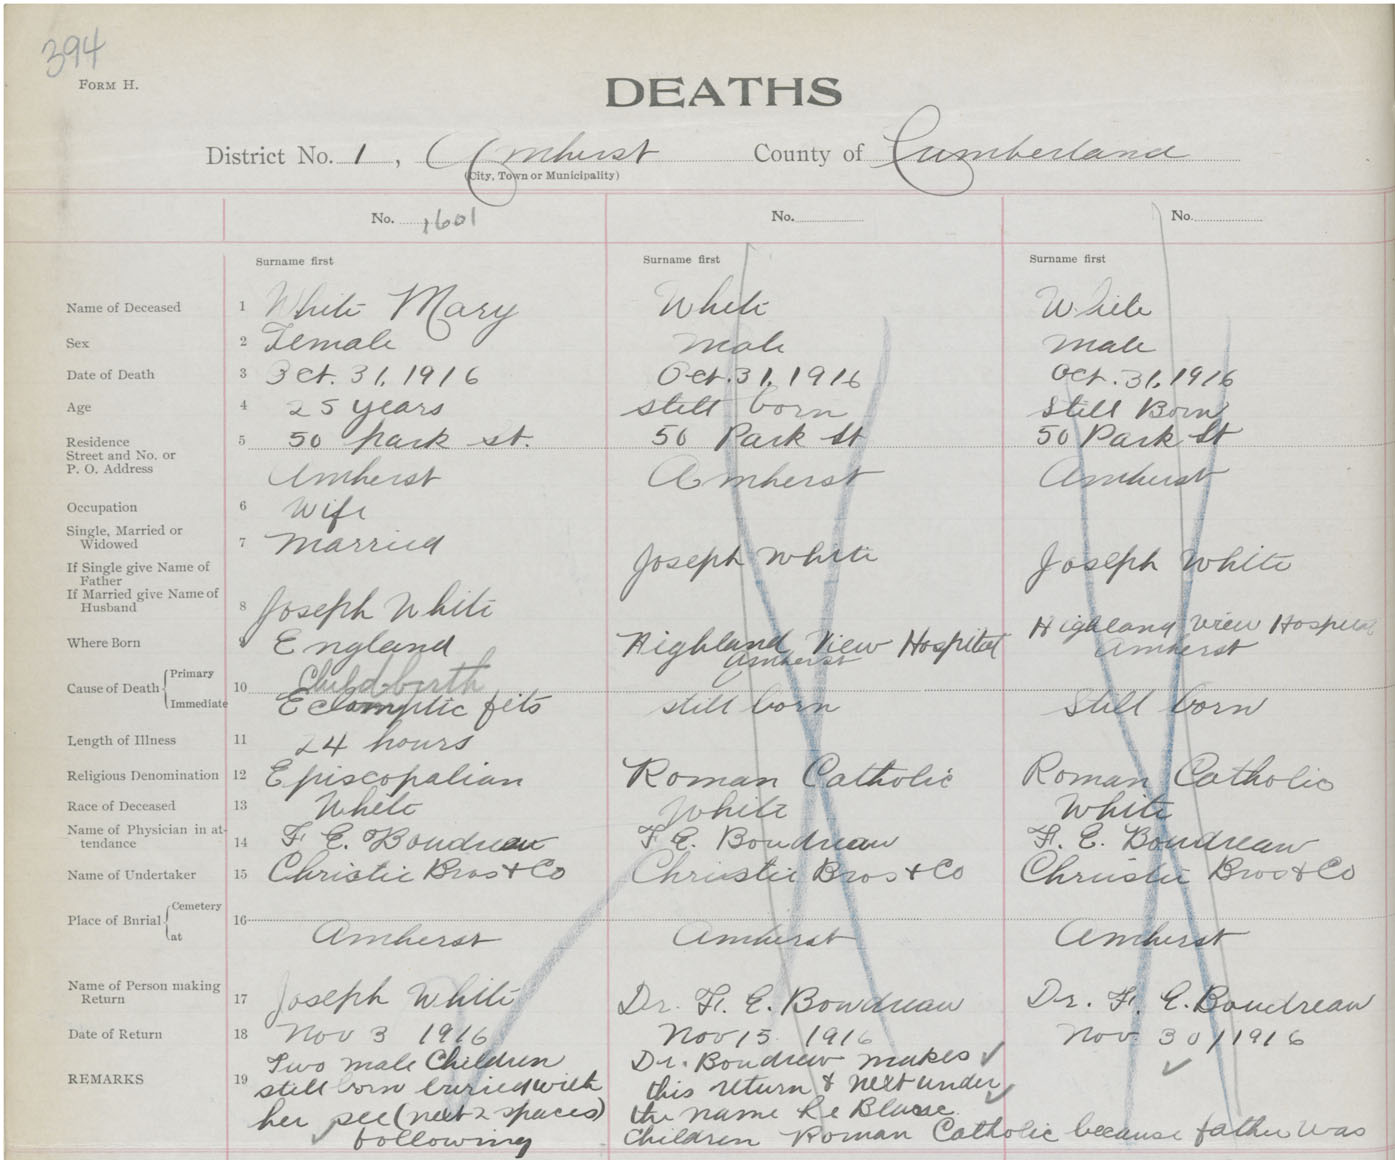 394
FORM H.
DEATHS
District No. 1, Amherst County of Cumberland
(City, Town or Municipality)
No. 1601 No. No.
Surname first Surname first Surname first
Name of Deceased 1 White Mary White White
Sex 2 Female male male
Date of Death 3 Oct. 31, 1916 Oct. 31, 1916 Oct. 31, 1916
Age 4 25 years still born Still Born
Residence
Street and No. or 5 50 park st. 50 Park St 50 Park St
P. O. Address
Amherst Amherst Amherst
Occupation 6 Wife
Single, Married or
Widowed 7 Married
If Single give Name of
Father Joseph White Joseph White
If Married give Name of
Husband 8 Joseph White
Where Born 9 England Highland View Hospital Highland View Hospital
Amherst Amherst
Cause of Death Primary 10 Childbirth
Immediate Eclamptic fits still born Still born
Length of Illness 11 24 hours
Religious Denomination 12 Episcopalian Roman Catholic Roman Catholic
Race of Deceased 13 White White White
Name of Physician in at-
tendance 14 F. E. Boudreau F. E. Boudreau F. E. Boudreau
Name of Undertaker 15 Christie Bros & Co Christie Bros & Co Christie Bros & Co
Place of Burial Cemetery 16
at Amherst Amherst Amherst
Name of Person making
Return 17 Joseph White Dr. F. E. Boudreau Dr. F. E. Boudreau
Date of Return 18 Nov 3 1916 Nov 15 1916 Nov. 30/1916
REMARKS 19
Two male Children
still born buried with
her see (next 2 spaces)
following
Dr. Boudrew makes
this return & next under
the name Le Blanc
Children Roman Catholic because father was